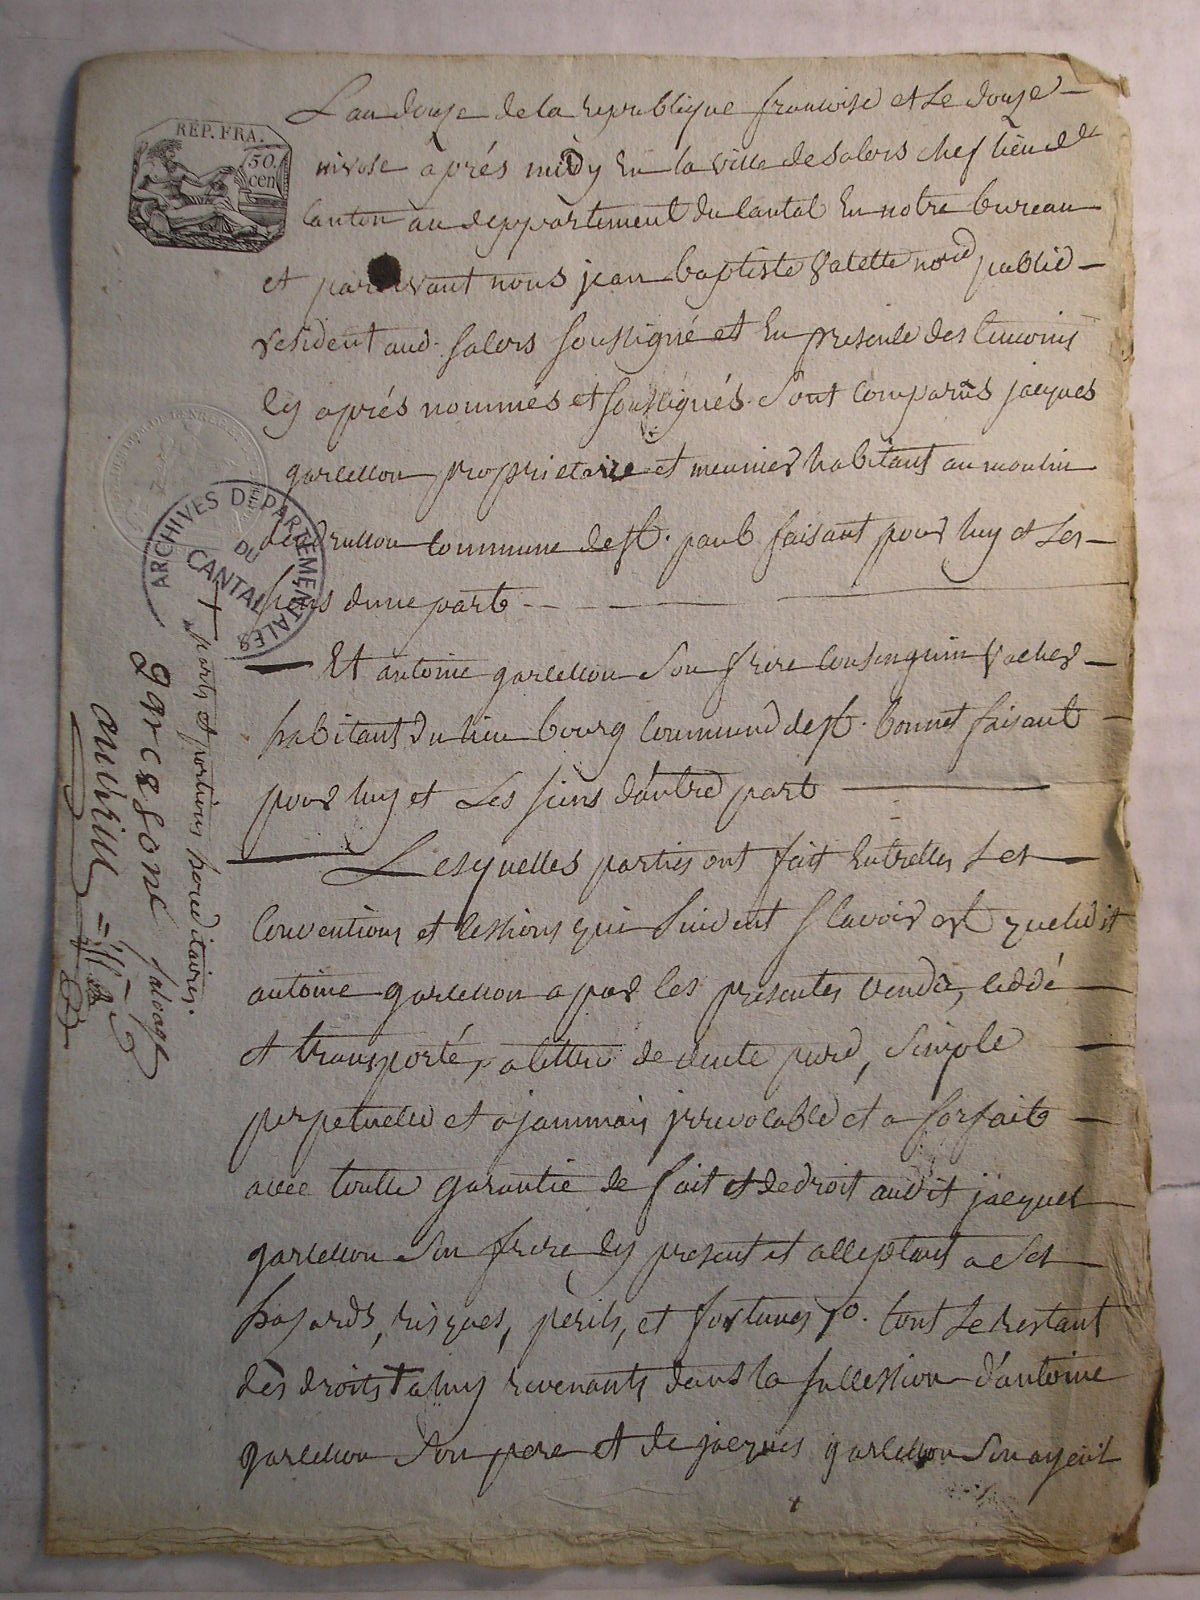 REP. FRA.
50 cen
L'an douze de la republique francoise et le douze
nivose après midy En la ville de salers chef lieu de
Canton au deppartement du Cantal En notre bureau
et pardevant nous jean baptiste Valette no.re public
resident aud. salers soussigné et En presence des temoins
cy après nommés et soussignés. Sont comparus jacques
garcelon proprietaire et meunier habitant au moulin
commune de st. paul faisant pour luy et Les
siens dune part
Et antoine garcelon Son frere Consanguin vacher
habitant du lieu bourg Commune de st. bonnet faisant
pour luy et Les siens dautre part
Lesquelles parties ont fait Entrelles Les
Conventions et Cessions qui Suivent Scavoir est que ledit
antoine garcelon a par les presentes vendu, ceddé
et transporté, a tittre de vente pure, simple
perpetuelle et a jammais jrrevocable et a forfait
avec toutte garantie de fait et de droit audit jacques
garcelon Son frere, cy present et acceptant a Ses
hazards, risques, perils, et fortunes 1o. tout Le restant
des droits + a luy revenants dans la succession d'antoine
garcelon Son pere et de jacques garcelon Son ayeul
+ parts et portions hereditaires
garcelone
salvage
ARCHIVES DEPARTEMENTALES
DU
CANTAL